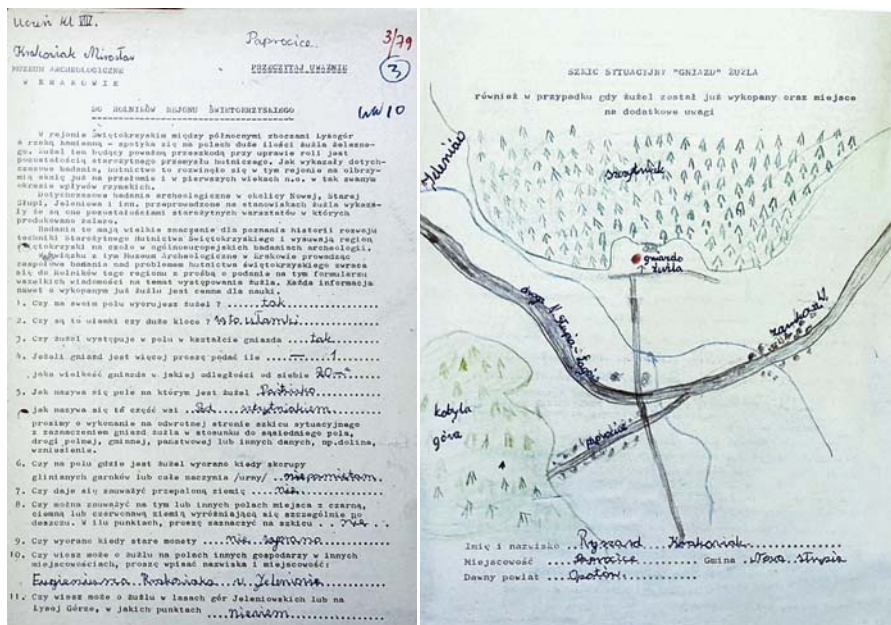 Uczeń Kl VIII.
Krakowiak Mirosław
Paprocice.
3/79
3
MUZEUM ARCHEOLOGICZNE
W KRAKOWIE
PRZECZYTAJ UWAŻNIE
DO ROLNIKÓW REJONU ŚWIĘTOKRZYSKIEGO
10
W rejonie Świętokrzyskim między północnymi zboczami Łysogór
a rzeką Kamienną - spotyka się na polach duże ilości żużla żelazne-
go. Żużel ten będący poważną przeszkodą przy uprawie roli jest
pozostałością starożytnego przemysłu hutniczego. Jak wykazały dotych-
czasowe badania, hutnictwo to rozwinęło się w tym rejonie na olbrzy-
mią skalę już na przełomie i w pierwszych wiekach n.e. w tak zwanym
okresie wpływów rzymskich.
Dotychczasowe badania archeologiczne w okolicy Nowej, Starej
Słupi, Jeleniowa i inn. przeprowadzone na stanowiskach żużla wykaza-
ły że są one pozostałościami starożytnych warsztatów w których
produkowano żelazo.
Badania te mają wielkie znaczenie dla poznania historii rozwoju
techniki Starożytnego Hutnictwa Świętokrzyskiego i wysuwają region
Świętokrzyski na czoło w ogólnoeuropejskich badaniach archeologii.
W związku z tym Muzeum Archeologiczne w Krakowie prowadząc
zespołowe badania nad problemem hutnictwa świętokrzyskiego zwraca
się do Rolników tego regionu z prośbą o podanie na tym formularzu
wszelkich wiadomości na temat występowania żużla. Każda informacja
nawet o wykopanym już żużlu jest cenna dla nauki.
1. Czy na swoim polu wyorujesz żużel ? tak
2. Czy są to ułamki czy duże kloce ? są to ułamki
3. Czy żużel występuje w polu w kształcie gniazda tak
4. Jeżeli gniazd jest więcej proszę podać ile — 1
jaka wielkość gniazda w jakiej odległości od siebie 20
5. Jak nazywa się pole na którym jest żużel
jak nazywa się ta część wsi Pod szczytniakiem
prosimy o wykonanie na odwrotnej stronie szkicu sytuacyjnego
z zaznaczeniem gniazd żużla w stosunku do sąsiedniego pola,
drogi polnej, gminnej, państwowej lub innych danych, np.dolina,
wzniesienie.
6. Czy na polu gdzie jest żużel wyorano kiedy skorupy
glinianych garnków lub całe naczynia /urny/ niepamiętam
7. Czy daje się zauważyć przepaloną ziemię nie
8. Czy można zauważyć na tym lub innych polach miejsca z czarną,
ciemną lub czerwonawą ziemią wyróżniającą się szczególnie po
deszczu. W ilu punktach, proszę zaznaczyć na szkicu nie
9. Czy wyorano kiedy stare monety nie
10. Czy wiesz może o żużlu na polach innych gospodarzy w innych
miejscowościach, proszę wpisać nazwiska i miejscowość:
Eugieniusza
11. Czy wiesz może o żużlu w lasach gór Jeleniowskich lub na
Łysej Górze, w jakich punktach niewiem
SZKIC SYTUACYJNY "GNIAZD" ŻUŻLA
również w przypadku gdy żużel został już wykopany oraz miejsce
na dodatkowe uwagi
Jeleniów
szczytniak
gniazdo
żużla
droga N Słupia - Łagów
kobyla
góra
paprocice
Imię i nazwisko Ryszard Krakowiak
Miejscowość Paprocice Gmina Nowa słupia
Dawny powiat Opatów